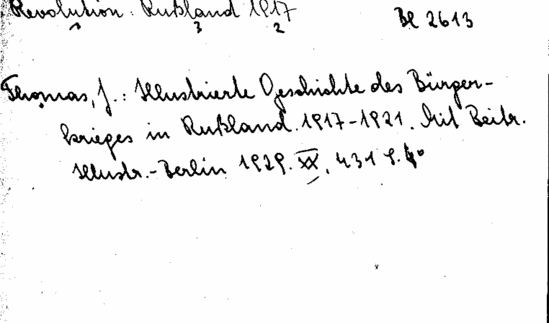 Revolution: Rußland 1917 Be 2613
1 3 2
Thomas, J.: Illustrierte Geschichte des Bürger-
krieges in Rußland. 1917-1921. Mit Beitr.
Illustr.-Berlin 1929. XX, 431 S. 4°